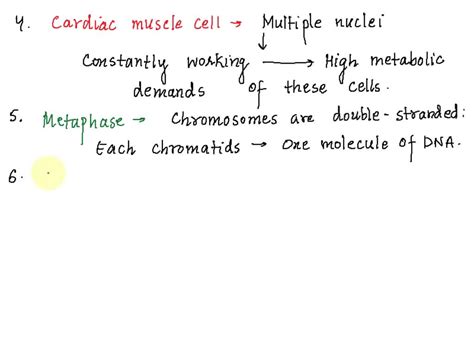 4. Cardiac muscle cell → Multiple nuclei
↓
Constantly working → High metabolic
demands of these cells.
5. Metaphase → Chromosomes are double-stranded:
Each chromatids → One molecule of DNA.
6.